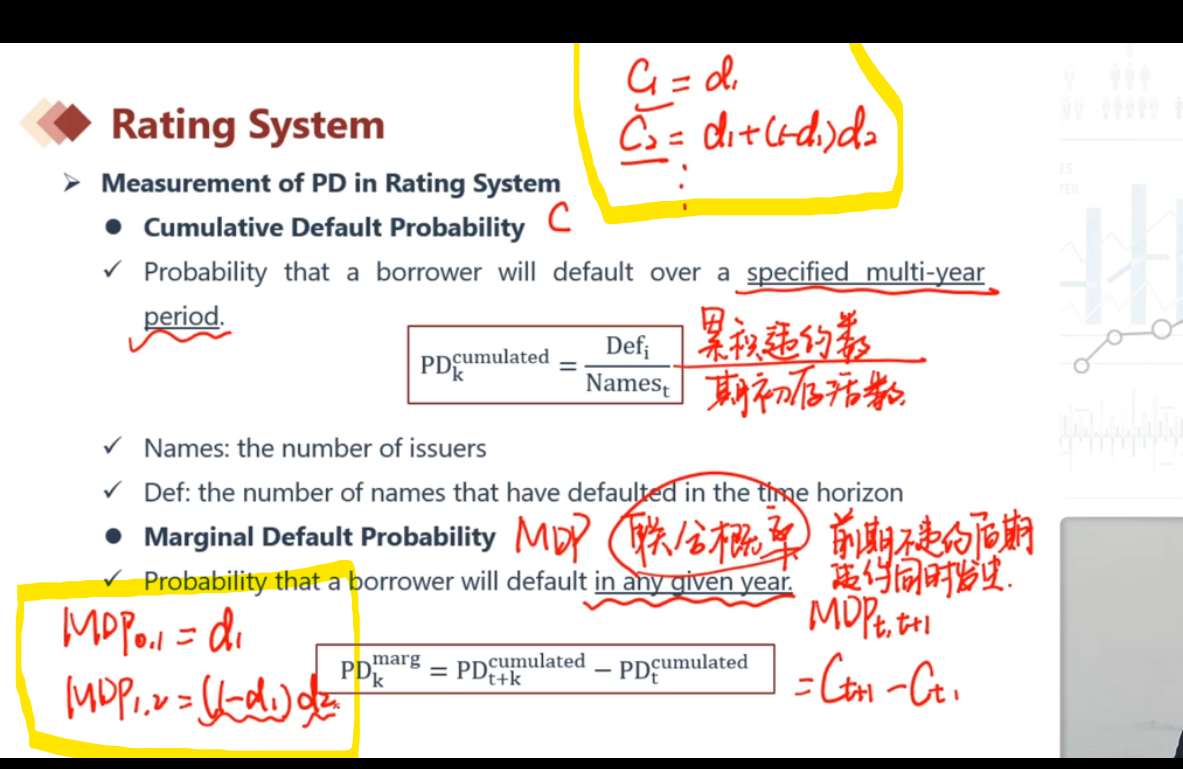 C₁ = d₁
C₂ = d₁+(1-d₁)d₂
⋮
Rating System
➢ Measurement of PD in Rating System
● Cumulative Default Probability C
✓ Probability that a borrower will default over a specified multi-year
period.
PD_k^cumulated = Def_i / Names_t 累积违约数 / 期初存活数
✓ Names: the number of issuers
✓ Def: the number of names that have defaulted in the time horizon
● Marginal Default Probability MDP 联合概率 前期不违约后期
✓ Probability that a borrower will default in any given year. 违约同时发生.
MDP₀,₁ = d₁ MDP_t,t+1
PD_k^marg = PD_t+k^cumulated − PD_t^cumulated = C_t+1 - C_t
MDP₁,₂ = (1-d₁)d₂